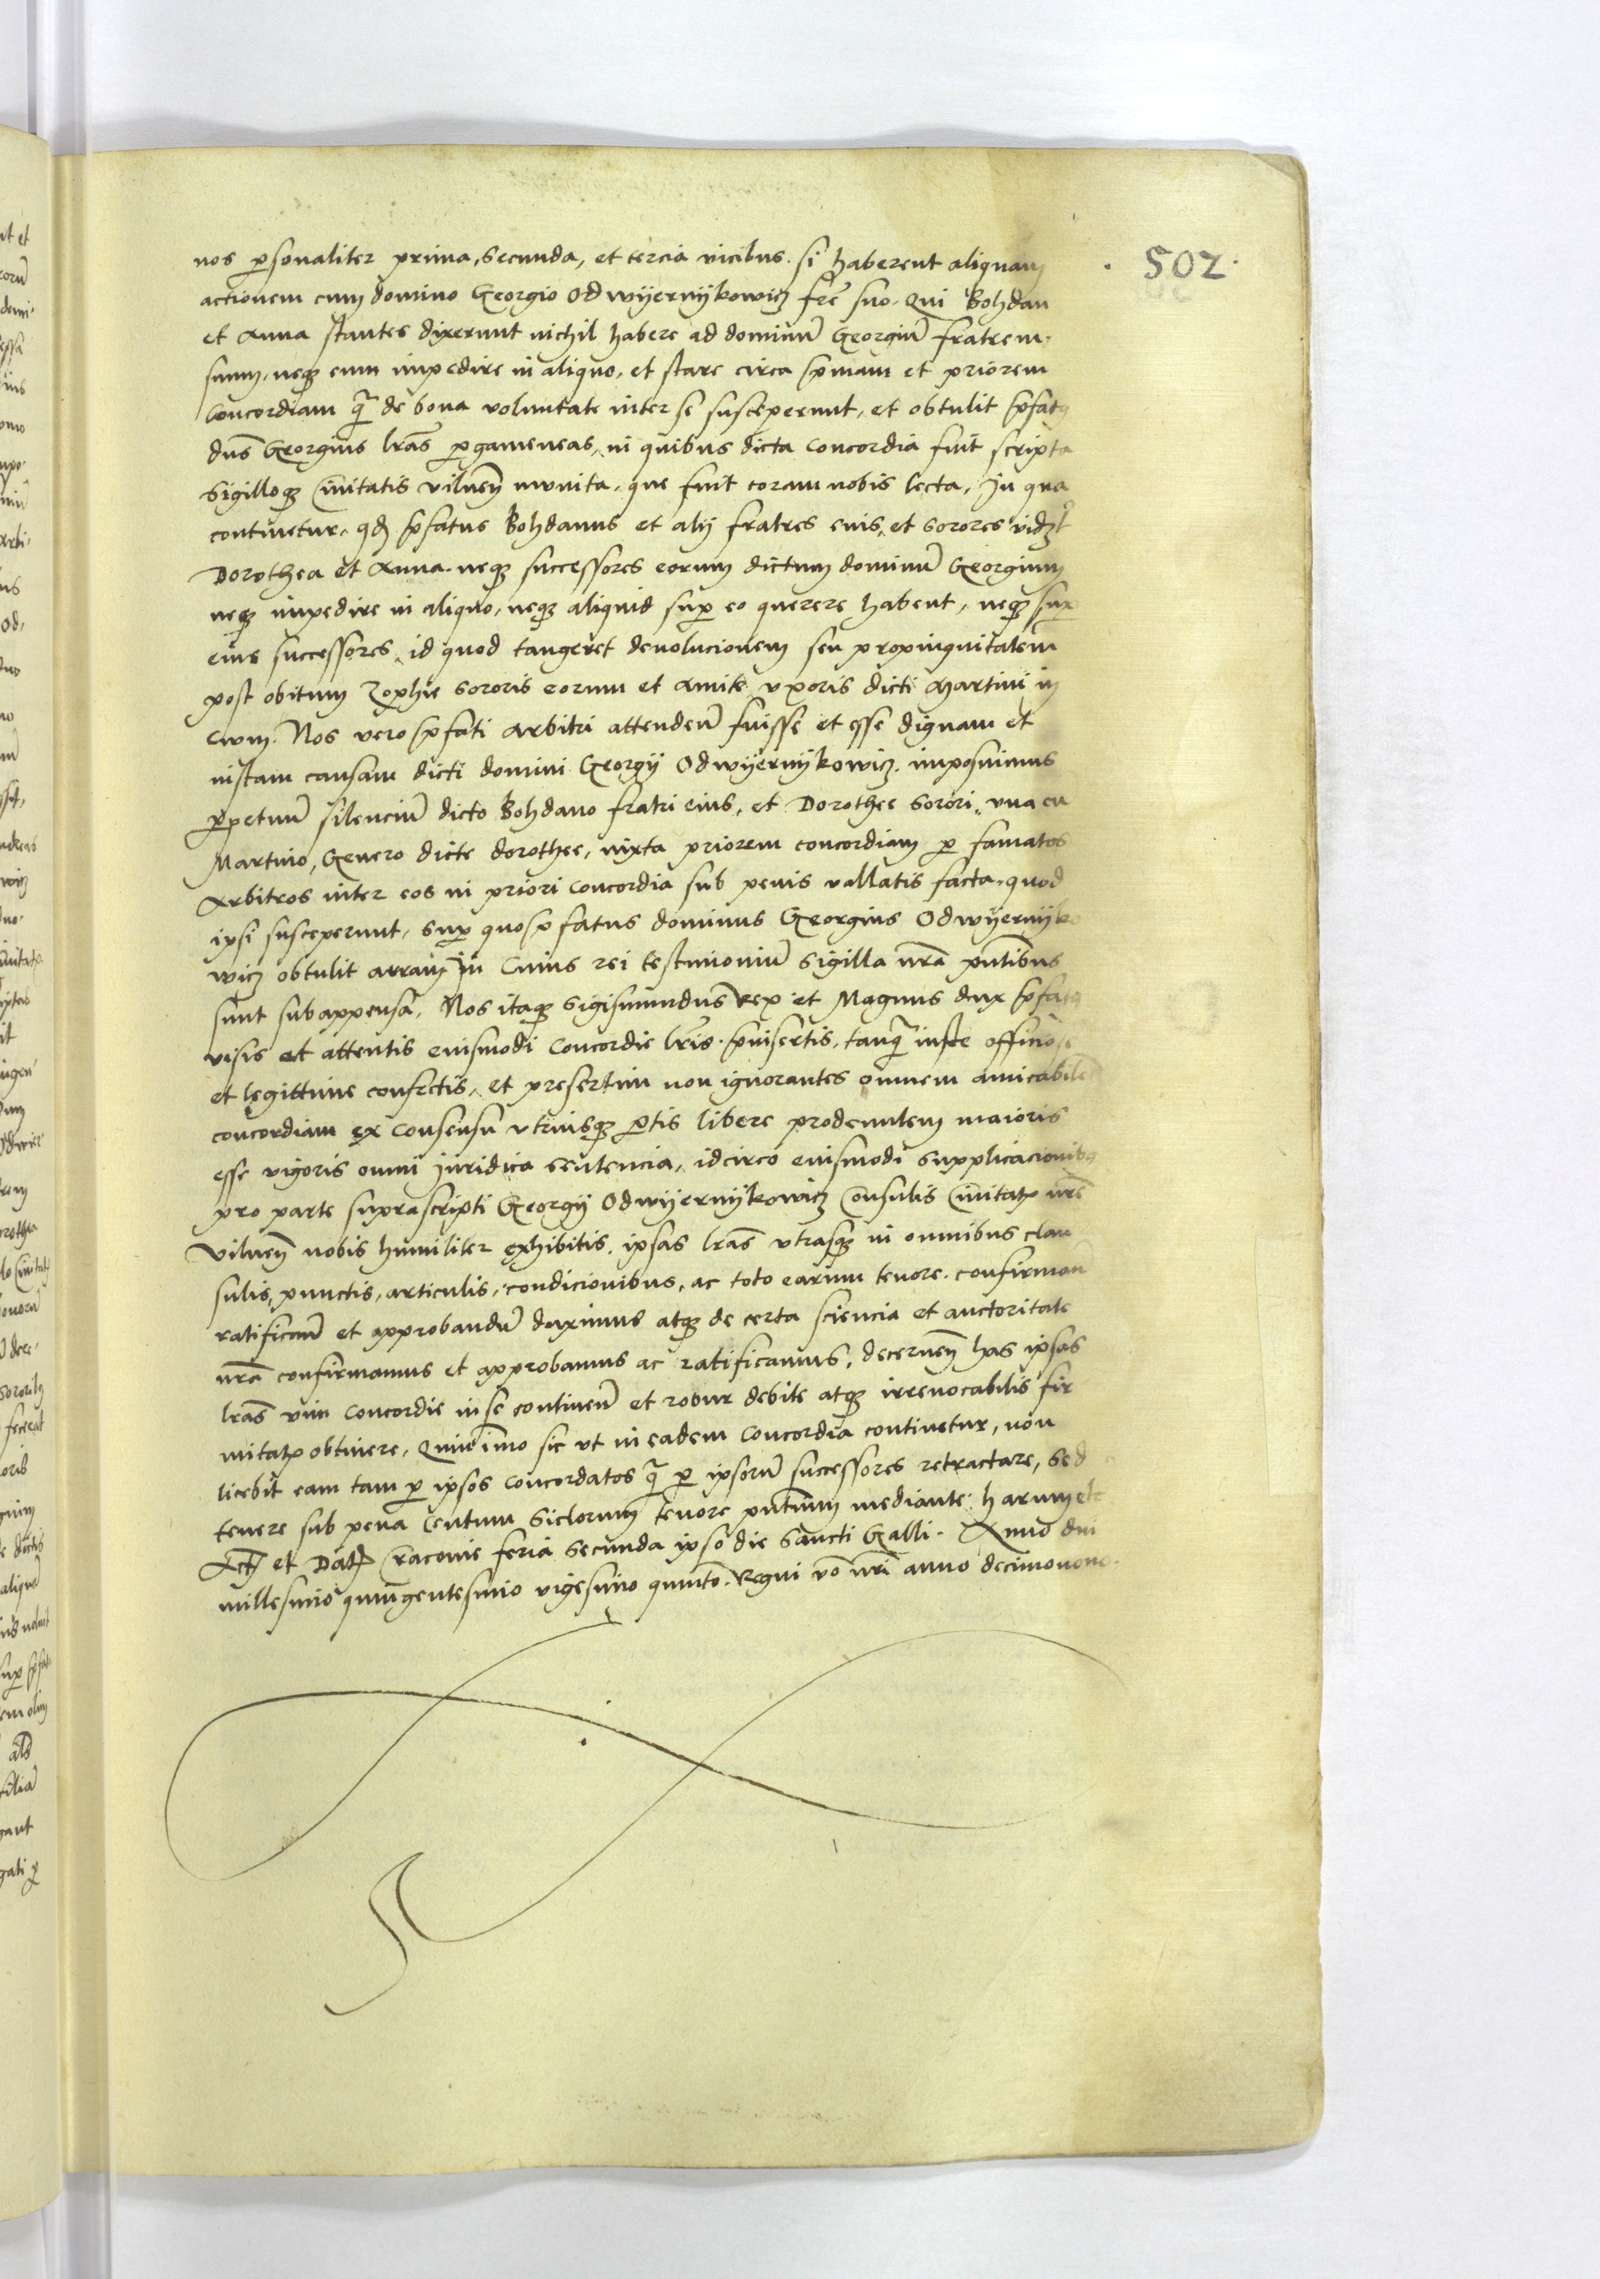 502
nos personaliter prima, secunda, et tercia vicibus. si haberent aliquam
actionem cum domino Georgio Odwyernykowicz fre suo. Qui Bohdan
et Anna stantes dixerunt nichil habere ad dominu Georgiu fratrem
suum, neq eum impedire in aliquo, et stare circa primam et priorem
Concordiam qua de bona voluntate inter se susceperunt, et obtulit prefatq
dns Georgius lras pergameneas, in quibus dicta Concordia fuit scripta
Sigilloq Civitatis vilnen munita, que fuit coram nobis lecta, In qua
continetur, qd prefatus Bohdanus et alij fratres eius, et sorores vidzt
Dorothea et Anna. neq successores eorum dictum dominu Georgium
neq impedire in aliquo, neq aliquid super eo querere habent, neq super
eius successores, id quod tangeret devolucionem seu propinquitatem
post obitum Zophie sororis eorum et Amite vxoris dicti Martini in
evum. Nos vero prefati Arbitri attenden fuisse et esse dignam et
iustam causam dicti domini Georgij Odwyernykowicz. imposuimus
perpetuu silenciu dicto Bohdano fratri eius, et Dorothee sorori, vna cu
Martino, Genero dicte dorothee, iuxta priorem concordiam per famatos
Arbitros inter eos in priori Concordia sub penis vallatis facta, quod
ipsi susceperunt, super quo prefatus dominus Georgius Odwyernyko
wicz obtulit arram In Cuius rei testimoniu Sigilla nra pntibus
sunt subappensa, Nos itaq Sigismundus Rex et Magnus dux prefatq
visis et attentis eiusmodi Concordie lris preinsertis, tanq iuste officiose
et legittime confectis, et presertim non ignorantes omnem amicabilem
concordiam ex Consensu vtriusq partis libere prodeuntem maioris
esse vigoris omni Juridica sentencia, idcirco eiusmodi supplicacionibq
pro parte suprascripti Georgij Odwyernykowicz Consulis Civitatis nre
vilnen nobis humiliter exhibitis, ipsas lras vtrasq in omnibus clau
sulis, punctis, articulis, condicionibus, ac toto earum tenore. confirman
ratifican et approbandu duximus atq de certa sciencia et auctoritate
nra confirmamus et approbamus ac ratificamus, decernen has ipsas
lras vim Concordie in se continen et robur debite atq irrevocabilis fir
mitatis obtinere, Quinimo sic vt in eadem Concordia continetur, non
licebit eam tam per ipsos Concordatos q per ipsoru successores retractare, sed
tenere sub pena Centum Siclorum tenore pntium mediante harum etc
Act et Dat Cracovie feria secunda ipso die Sancti Galli. Anno dni
millesimo quingentesimo vigesimo quinto. Regni vo nri anno decimonono.